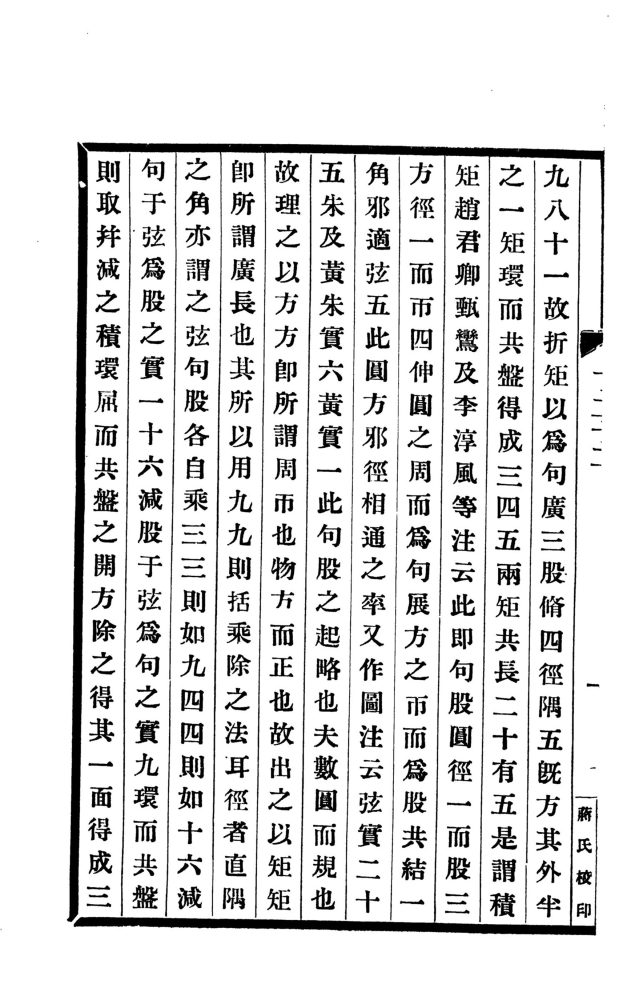 九八十一故折矩以爲句廣三股脩四徑隅五既方其外半
之一矩環而共盤得成三四五兩矩共長二十有五是謂積
矩趙君卿甄鸞及李淳風等注云此即句股圓徑一而股三
方徑一而帀四伸圓之周而爲句展方之帀而爲股共結一
角邪適弦五此圓方邪徑相通之率又作圖注云弦實二十
五朱及黃朱實六黃實一此句股之起略也夫數圓而規也
故理之以方方卽所謂周帀也物方而正也故出之以矩矩
卽所謂廣長也其所以用九九則括乘除之法耳徑者直隅
之角亦謂之弦句股各自乘三三則如九四四則如十六減
句于弦爲股之實一十六減股于弦爲句之實九環而共盤
則取幷減之積環屈而共盤之開方除之得其一面得成三
蔣氏校印